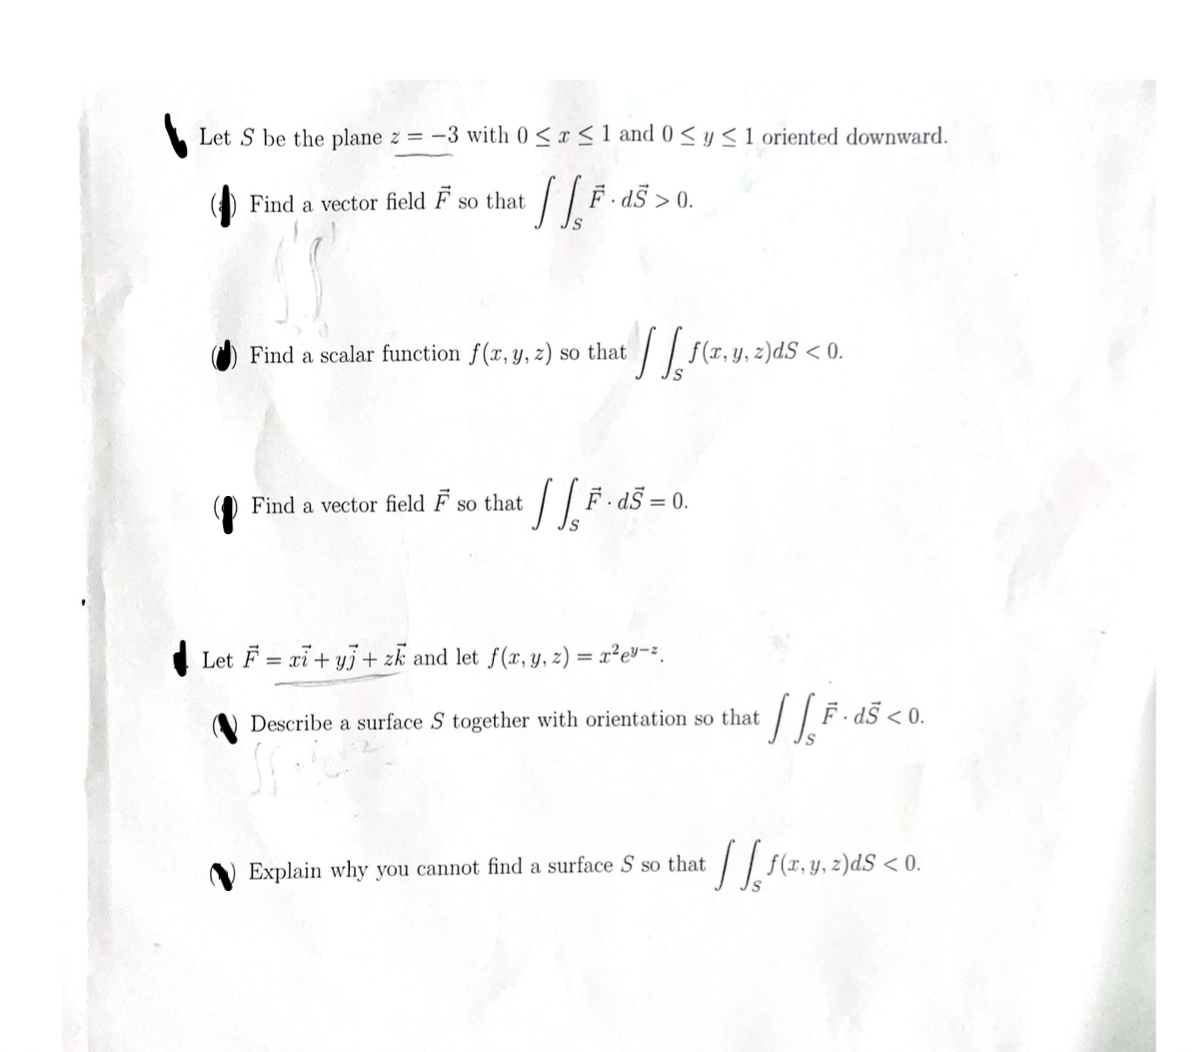 Let S be the plane z = −3 with 0 ≤ x ≤ 1 and 0 ≤ y ≤ 1 oriented downward.
( ) Find a vector field F⃗ so that ∫∫_S F⃗ · dS⃗ > 0.
( ) Find a scalar function f(x, y, z) so that ∫∫_S f(x, y, z)dS < 0.
( ) Find a vector field F⃗ so that ∫∫_S F⃗ · dS⃗ = 0.
Let F⃗ = xi⃗ + yj⃗ + zk⃗ and let f(x, y, z) = x²e^{y−z}.
( ) Describe a surface S together with orientation so that ∫∫_S F⃗ · dS⃗ < 0.
( ) Explain why you cannot find a surface S so that ∫∫_S f(x, y, z)dS < 0.